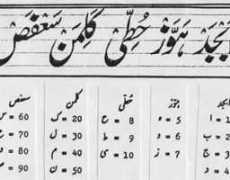 ابجد ہوّز حُطّی کلمن سعفص
ابجد ہوّز حُطّی کلمن سعفص
1 = ا 5 = ہ 8 = ح 20 = ک 60 = س
2 = ب 6 = و 9 = ط 30 = ل 70 = ع
3 = ج 7 = ز 10 = ی 40 = م 80 = ف
4 = د 50 = ن 90 = ص